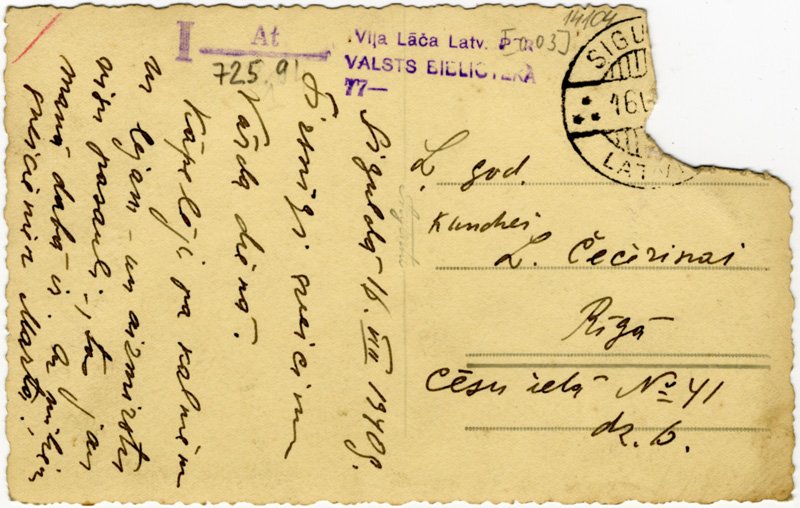 I At
725,91
Viļa Lāča Latv. PSR
VALSTS BIBLIOTEKA
77—
14104
SIGU
16I-
LATV
Siguldā 16. VIII 1940g.
Sirsnīgi sveicinu
Vārda dienā.
Kāpelēju pa kalniem
un lejam - un aizmirstu
visu pasauli, - tā jau
manā dabā ir. Ar mīļiem
sveicieniem Marta.
L. god.
Kundzei
L. Čečiņinai
Rīgā
Cēsu ielā № 41
dz. 6.